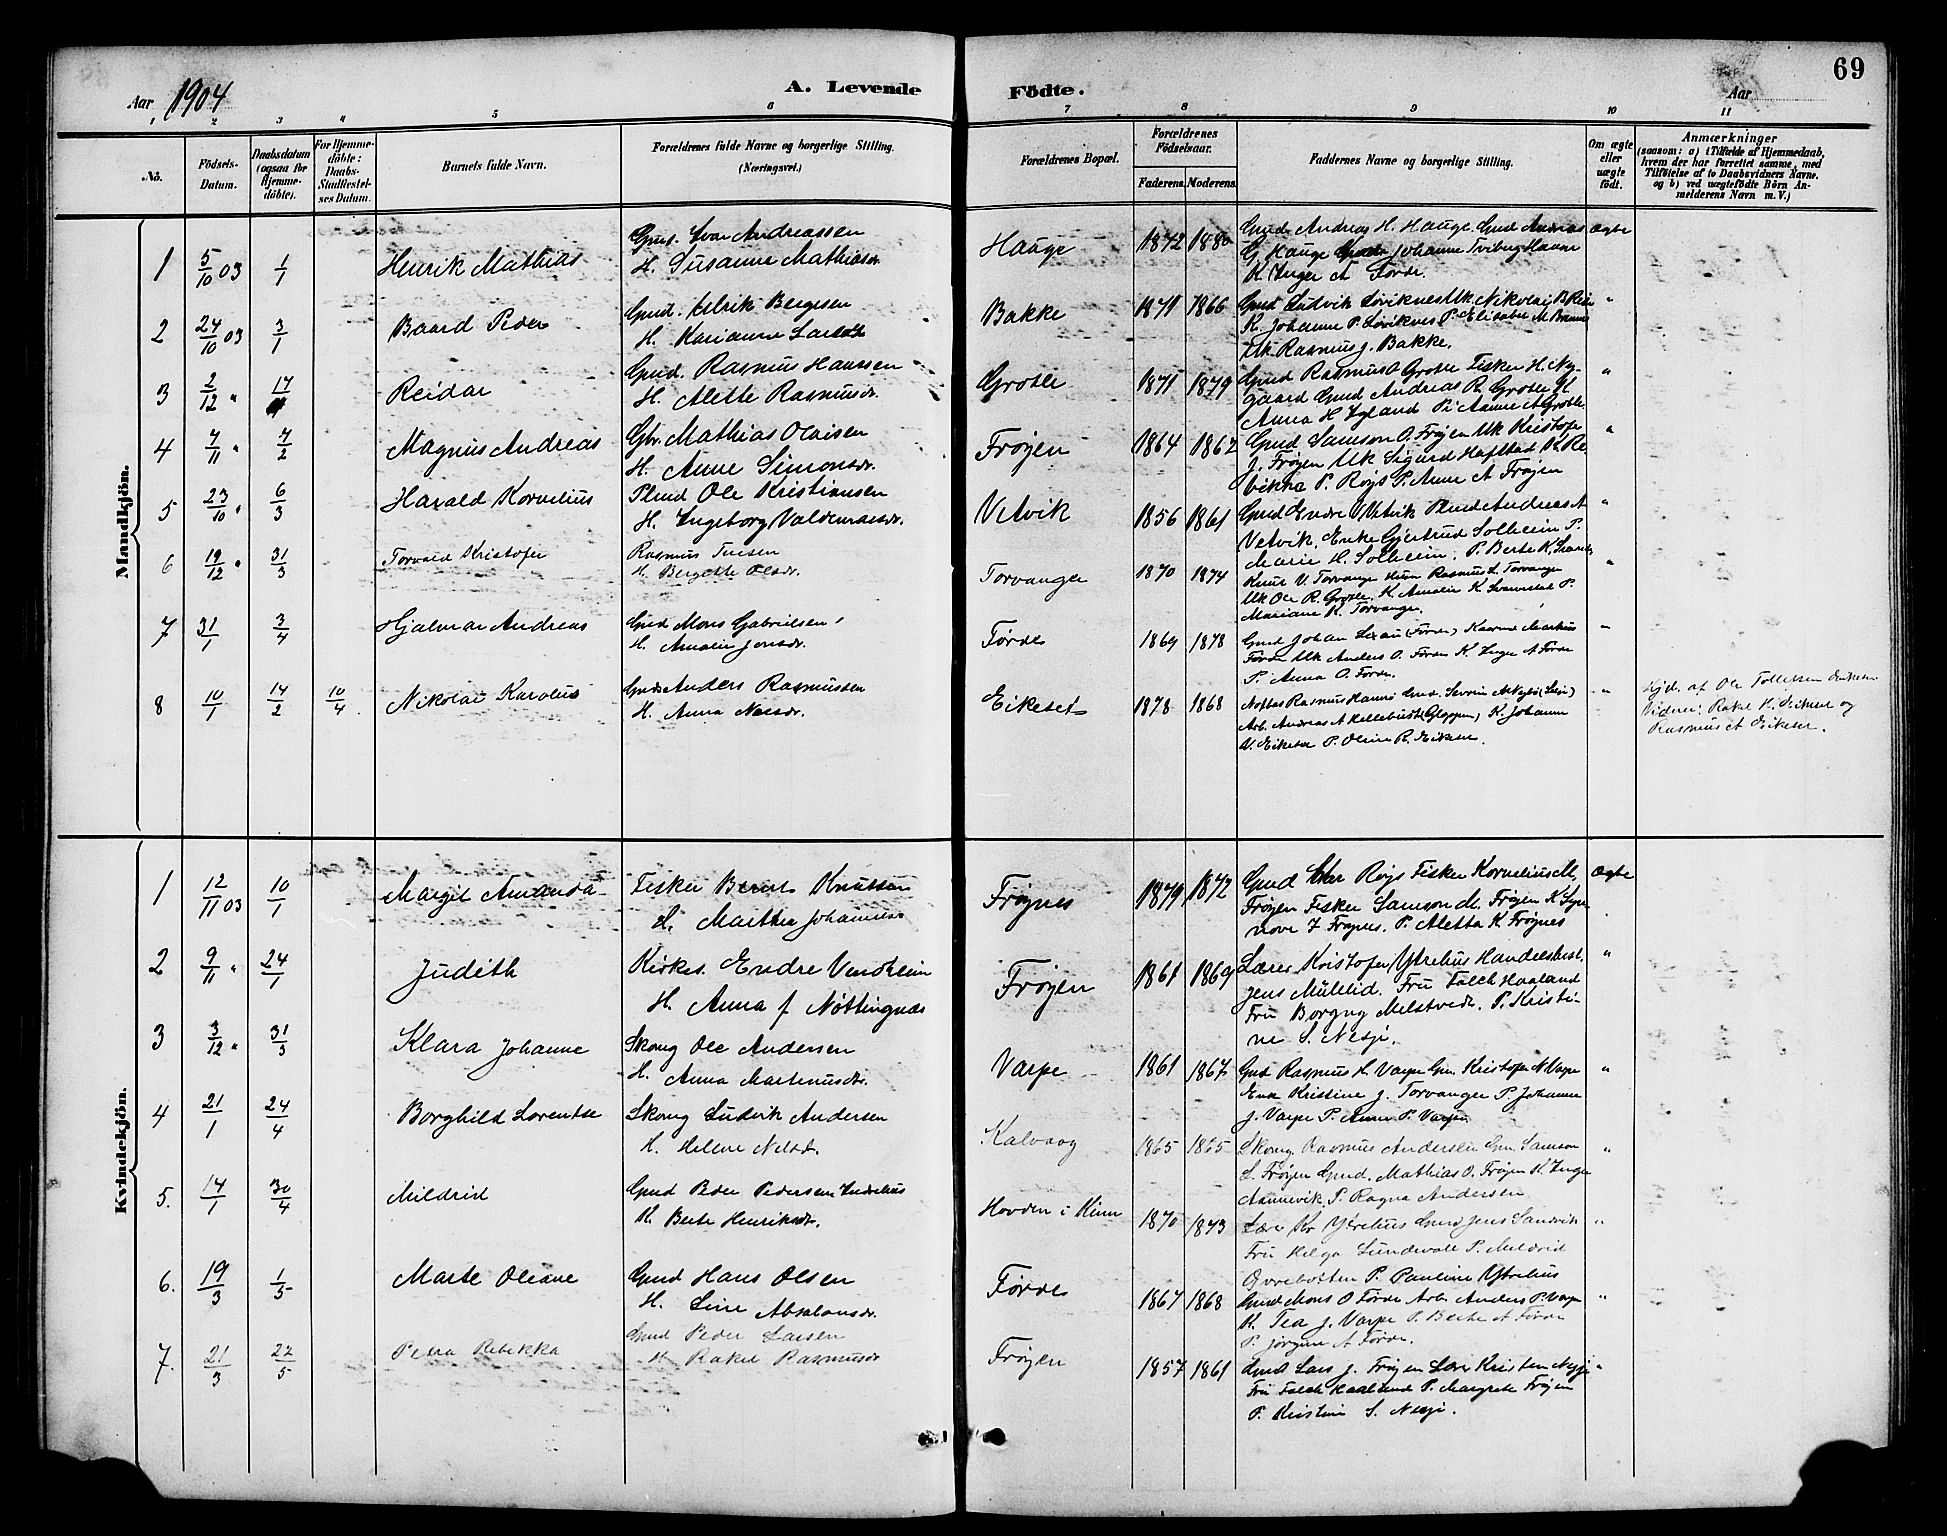 69
Aar 1904
A. Levende Födte.
Aar
1 2 3 4 5 6 7 8 9 10 11
No.
Födsels-Datum.
Daabsdatum (ogsaa for Hjemme-döbte).
For Hjemme-döbte: Daabs-Stadfæstelses Datum.
Barnets fulde Navn.
Forældrenes fulde Navne og borgerlige Stilling. (Næringsvei.)
Forældrenes Bopæl.
Forældrenes Födselsaar.
Faderens. Moderens.
Faddernes Navne og borgerlige Stilling.
Om ægte eller uægte födt.
Anmærkninger
(saasom: a) i Tilfælde af Hjemmedaab, hvem der har forrettet samme, med Tilföielse af to Daabsvidners Navne. og b) ved uægtefödte Börn Anmelderens Navn m. V.)
Mandkjön.
1 5/10 03 1/1 Henrik Mathias
Gmd. Ivar Andreassen
H. Susanne Mathiasdr.
Hauge 1872 1880
Gmd Andreas H. Hauge Gmd Andreas
G Hauge Johanne
K Inger A Førde.
Ægte
2 24/10 03 3/1 Baard Peder
Gmd. Bergesen
H. Karianne Larsdtr
Bakke 1871 1866
Gmd Ludvik Løviknes Uk Nikolai B
K. Johanne P. Løviknes P. Elisabet M
Uk Rasmus J. Bakke.
"
3 2/12 " 17/1 Reidar
Gmd. Rasmus Hanssen
H. Alette Rasmusdr.
Grotle 1871 1879
Gmd Rasmus O Grotle Fisker H. Ny-
gaard Gmd Andreas R. Grotle K
Anna H Igland Pi Anne A Grotle
"
4 7/11 " 7/2 Magnus Andreas
Gbr. Mathias Olaisen
H. Anne Simonsdr.
Frøyen 1864 1862
Gmd Samson O. Frøyen Uk Kristofer
J. Frøyen Uk Sigurd Hafstad K. Re
bikka P. Røys P. Anne A Frøyen
"
5 23/10 " 6/3 Harald Kornelius
Plmd Ole Kristiansen
H. Ingeborg Valdemarsdr.
Vetvik 1856 1861
Gmd Endre Vetvik Plmd Andreas A
Vetvik, Enke Gjertrud Solheim P.
Marie H. Solheim. P. Berte K.
"
6 19/12 " 31/3 Torvald Kristofer
Rasmus
H. Bergette Olsdr.
Torvanger 1870 1874
Knut V. Torvanger Rasmus L. Torvanger
Uk Ole R. Grotle. K Amalie K Svanestad P.
Mariane K. Torvanger.
"
7 31/1 3/4 Hjalmar Andreas
Gmd Mons Gabrielsen
H. Amalie Jonsdr.
Førde 1869 1878
Gmd Johan (Førde) Markus
Førde Uk Anders O. Førde K. Inger A Førde
P. Anna O. Førde.
"
8 10/1 14/2 10/4 Nikolai Karolus
Gmd Anders Rasmussen
H. Anna Nilsdr.
Eikeset 1878 1868
Rasmus Gmd. Severin
Arb. Andreas A (Gloppen) K. Johanne
V. Eikeset P. Oline R. Eikeset.
"
Hjd. af Ole Tollefsen Eikeset
Vidner: Rakel K. Eikeset og
Rasmus A Eikeset.
Kvindekjön.
1 12/11 03 10/1 Margit Amanda
Fisker Bernt Knutsen
H. Marthea Johannesdr
Frøynes 1879 1872
Gmd Røys Fisker Kornelius M.
Frøyen Fisker Samson M. Frøyen K Syn
nøve I Frøynes. P. Aletta K Frøynes
Ægte
2 9/11 " 24/1 Judith
Kirkes. Endre Vendheim
H. Anna f Nøttingnæs
Frøyen 1861 1869
Lærer Kristofer Ytrehus Handelsbest.
Jens Muletid. Fru Falch Haaland
Fru Borgny Melstvedt. P. Kristi-
ne S. Nesje.
"
3 3/12 " 31/3 Klara Johanne
Skomg Ole Andersen
H. Anna Martinusdr.
Varpe 1861 1867
Gmd Rasmus H. Varpe Gm. Kristofer N. Varpe
Enk Kristine J. Torvanger P Johanne
J. Varpe P. Anne P. Varpe
"
4 21/1 24/4 Borghild Lorentse
Skomg Ludvik Andersen
H. Helene Nilsd.
Kalvaag 1865 1865
Skomg Rasmus Andersen Gm. Samson
S. Frøyen Gmd. Mathias O. Frøyen K. Inger
Aannevik. P. Ragna Andersen
"
5. 14/1 30/4 Mildrid
Gmd Peder Pedersen Indrehus
H. Berte Henriksdr.
Hovden i Kinn 1870 1873
Lær Kr Ytrehus Gmd Jens Sandvik
Fru Helga Lundevall P. Mildrid
Øvrebotten P. Pauline Ytrehus
"
6. 19/3 1/5 Marte Oleane
Gmd Hans Olsen
H. Line Absalonsdr.
Førde 1867 1868
Gmd Mons O Førde Arb. Anders P. Varpe
K. Tea J. Varpe P. Berte A Førde
P. Jørgine A Førde.
"
7. 21/3 22/5 Petra Rebekka
Gmd Peder Larsen
H. Rakel Rasmusdr
Frøyen 1857 1861
Gmd Lars J. Frøyen Lærer Kristen Nesje
Fru Falch Haaland P. Margrete Frøyen
P. Kristine S. Nesje.
"